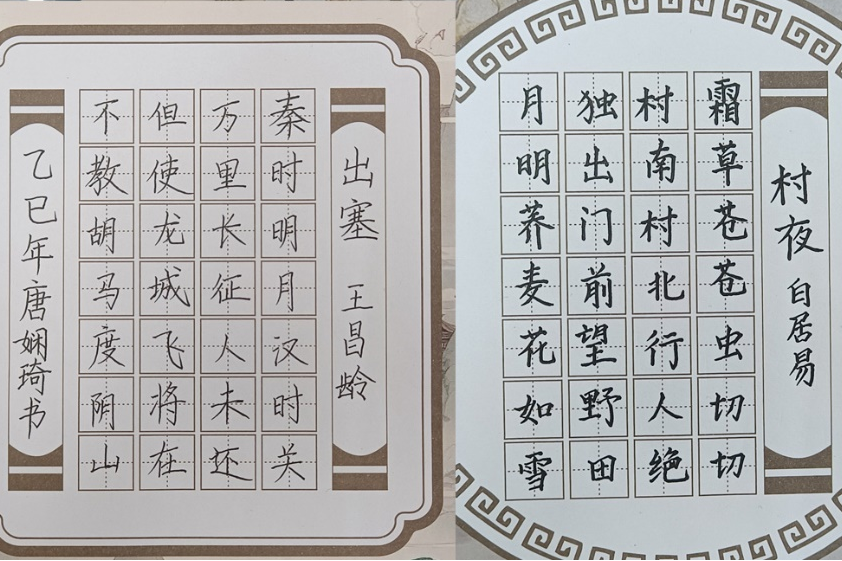 出塞 王昌龄
秦时明月汉时关
万里长征人未还
但使龙城飞将在
不教胡马度阴山
乙巳年唐娴琦书
村夜 白居易
霜草苍苍虫切切
村南村北行人绝
独出门前望野田
月明荞麦花如雪